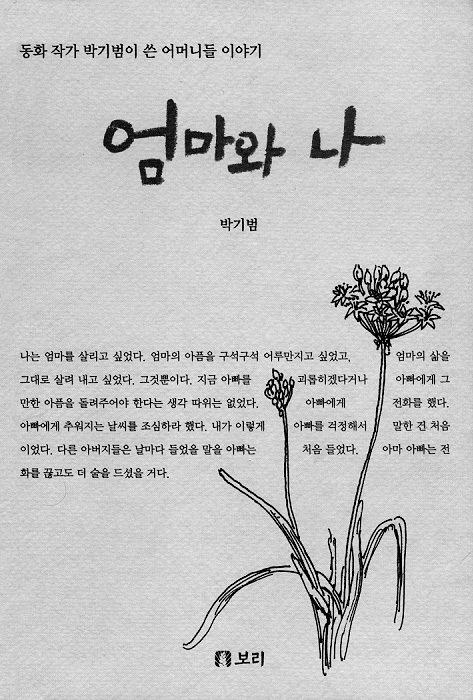 동화 작가 박기범이 쓴 어머니들 이야기
엄마와 나
박기범
나는 엄마를 살리고 싶었다. 엄마의 아픔을 구석구석 어루만지고 싶었고, 엄마의 삶을
그대로 살려 내고 싶었다. 그것뿐이다. 지금 아빠를 괴롭히겠다거나 아빠에게 그
만한 아픔을 돌려주어야 한다는 생각 따위는 없었다. 아빠에게 전화를 했다.
아빠에게 추워지는 날씨를 조심하라 했다. 내가 이렇게 아빠를 걱정해서 말한 건 처음
이었다. 다른 아버지들은 날마다 들었을 말을 아빠는 처음 들었다. 아마 아빠는 전
화를 끊고도 더 술을 드셨을 거다.
보리